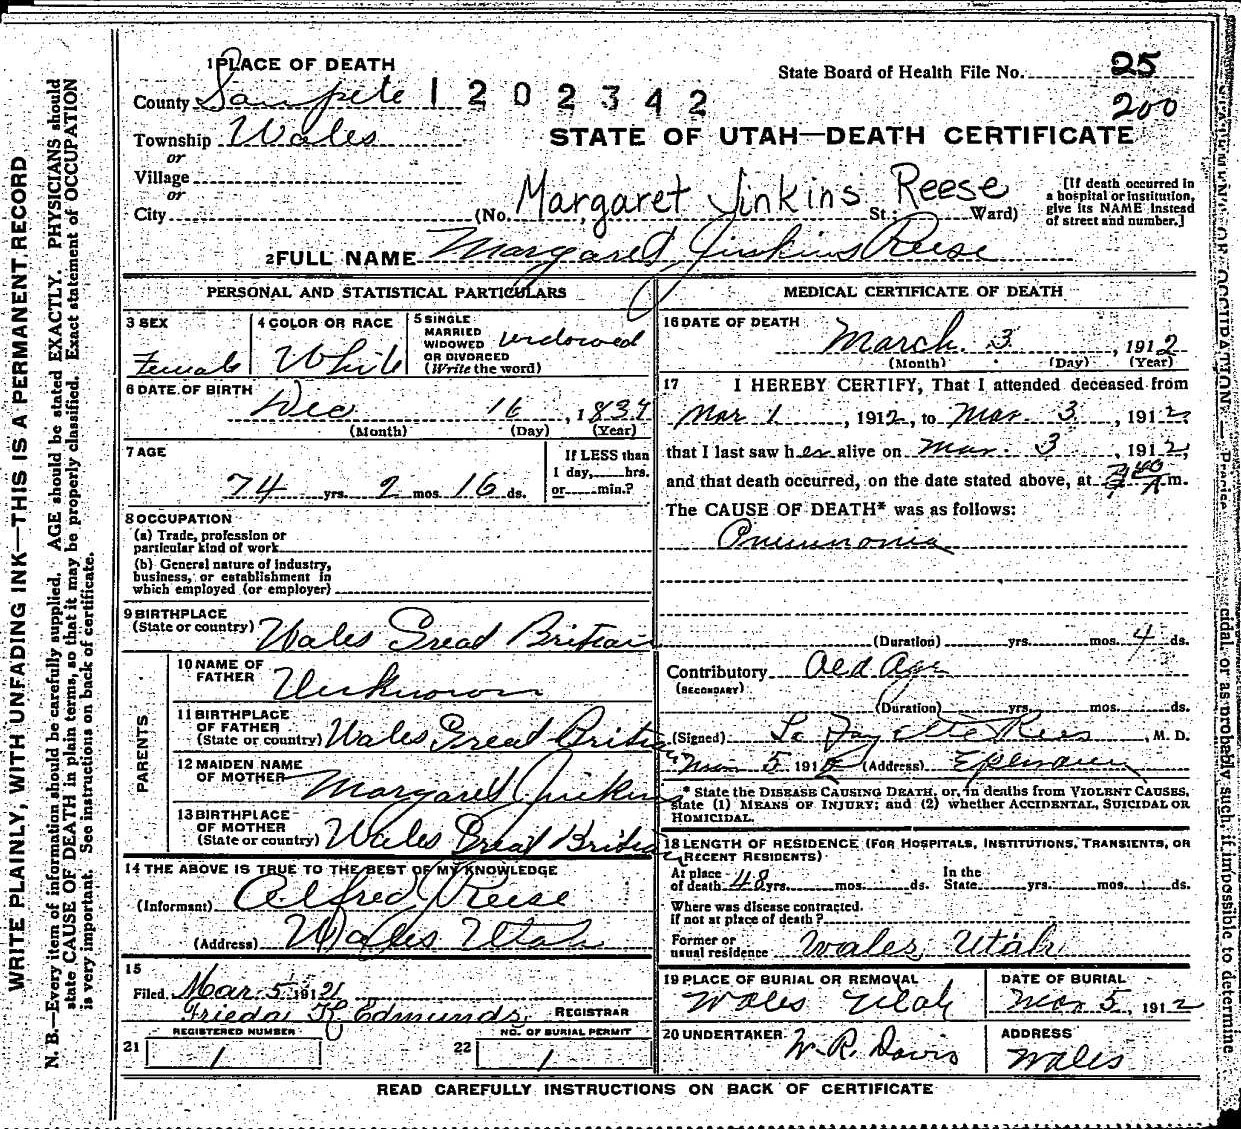 1 PLACE OF DEATH
State Board of Health File No. 25
County Sanpete 1202342
200
Township Wales
STATE OF UTAH—DEATH CERTIFICATE
or
Village
or
City (No. Margaret Jinkins Reese St.; Ward)
[If death occurred in a hospital or institution, give its NAME instead of street and number.]
2 FULL NAME Margaret Jinkins Reese
PERSONAL AND STATISTICAL PARTICULARS
3 SEX Female
4 COLOR OR RACE White
5 SINGLE MARRIED WIDOWED OR DIVORCED (Write the word) widowed
6 DATE OF BIRTH
Dec 16, 1837
(Month) (Day) (Year)
7 AGE
74 yrs. 2 mos. 16 ds.
If LESS than 1 day, hrs. or min.?
8 OCCUPATION
(a) Trade, profession or
particular kind of work
(b) General nature of industry,
business, or establishment in
which employed (or employer)
9 BIRTHPLACE
(State or country) Wales Great Britian
PARENTS
10 NAME OF FATHER Unknown
11 BIRTHPLACE OF FATHER
(State or country) Wales Great Britian
12 MAIDEN NAME OF MOTHER Margaret Jinkins
13 BIRTHPLACE OF MOTHER
(State or country) Wales Great Britian
14 THE ABOVE IS TRUE TO THE BEST OF MY KNOWLEDGE
(Informant) Alfred Reese
(Address) Wales Utah
15
Filed Mar 5 1912
Frieda K Edmunds REGISTRAR
REGISTERED NUMBER
21 1
NO. OF BURIAL PERMIT
22 1
MEDICAL CERTIFICATE OF DEATH
16 DATE OF DEATH
March 3, 1912
(Month) (Day) (Year)
17 I HEREBY CERTIFY, That I attended deceased from
Mar 1, 1912, to Mar. 3, 1912,
that I last saw her alive on Mar. 3, 1912,
and that death occurred, on the date stated above, at m.
The CAUSE OF DEATH* was as follows:
Pneumonia
(Duration) yrs. mos. 4 ds.
Contributory Old Age
(SECONDARY)
(Duration) yrs. mos. ds.
(Signed) La Fayette Rees, M. D.
Mar 5 1912 (Address) Ephraim
* State the DISEASE CAUSING DEATH, or, in deaths from VIOLENT CAUSES,
state (1) MEANS OF INJURY; and (2) whether ACCIDENTAL, SUICIDAL OR
HOMICIDAL.
18 LENGTH OF RESIDENCE (FOR HOSPITALS, INSTITUTIONS, TRANSIENTS, OR
RECENT RESIDENTS)
At place of death 48 yrs. mos. ds. In the State yrs. mos. ds.
Where was disease contracted,
if not at place of death?
Former or usual residence Wales, Utah
19 PLACE OF BURIAL OR REMOVAL
Wales Utah
DATE OF BURIAL
Mar 5, 1912
20 UNDERTAKER W. R. Davis
ADDRESS
Wales
READ CAREFULLY INSTRUCTIONS ON BACK OF CERTIFICATE
WRITE PLAINLY, WITH UNFADING INK—THIS IS A PERMANENT RECORD
N. B.—Every item of information should be carefully supplied. AGE should be stated EXACTLY. PHYSICIANS should
state CAUSE OF DEATH in plain terms, so that it may be properly classified. Exact statement of OCCUPATION
is very important. See instructions on back of certificate.